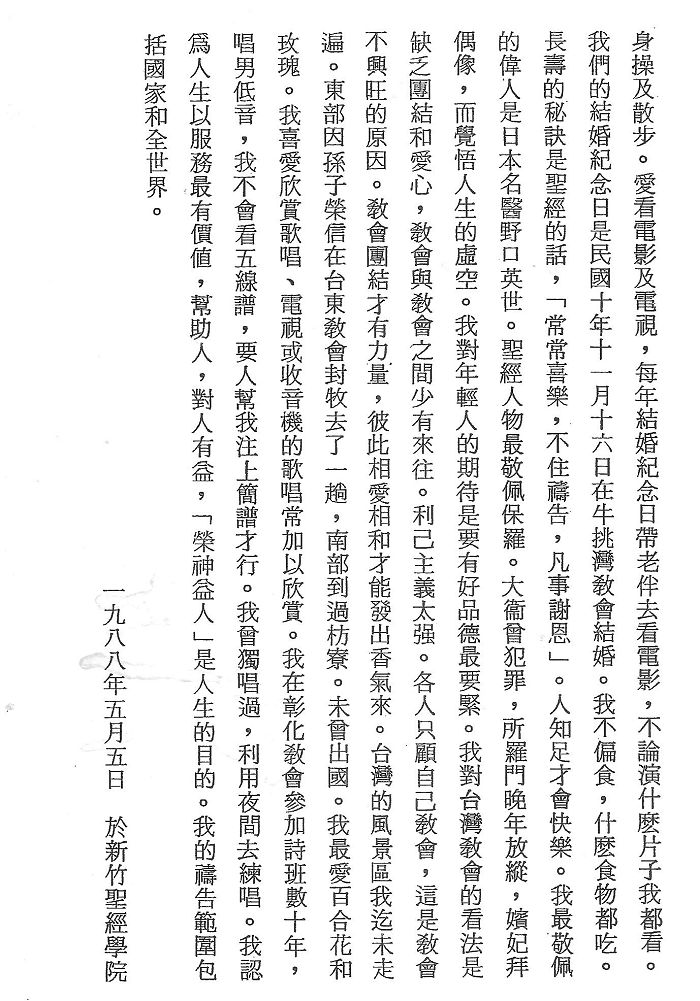 身操及散步。愛看電影及電視，每年結婚紀念日帶老伴去看電影，不論演什麽片子我都看。
我們的結婚紀念日是民國十年十一月十六日在牛挑灣敎會結婚。我不偏食，什麽食物都吃。
長壽的秘訣是聖經的話，「常常喜樂，不住禱告，凡事謝恩」。人知足才會快樂。我最敬佩
的偉人是日本名醫野口英世。聖經人物最敬佩保羅。大衞曾犯罪，所羅門晚年放縱，嬪妃拜
偶像，而覺悟人生的虛空。我對年輕人的期待是要有好品德最要緊。我對台灣敎會的看法是
缺乏團結和愛心，敎會與敎會之間少有來往。利己主義太强。各人只顧自己敎會，這是敎會
不興旺的原因。敎會團結才有力量，彼此相愛相和才能發出香氣來。台灣的風景區我迄未走
遍。東部因孫子榮信在台東敎會封牧去了一趟，南部到過枋寮。未曾出國。我最愛百合花和
玫瑰。我喜愛欣賞歌唱、電視或收音機的歌唱常加以欣賞。我在彰化敎會參加詩班數十年，
唱男低音，我不會看五線譜，要人幫我注上簡譜才行。我曾獨唱過，利用夜間去練唱。我認
爲人生以服務最有價値，幫助人，對人有益，「榮神益人」是人生的目的。我的禱告範圍包
括國家和全世界。
一九八八年五月五日　於新竹聖經學院